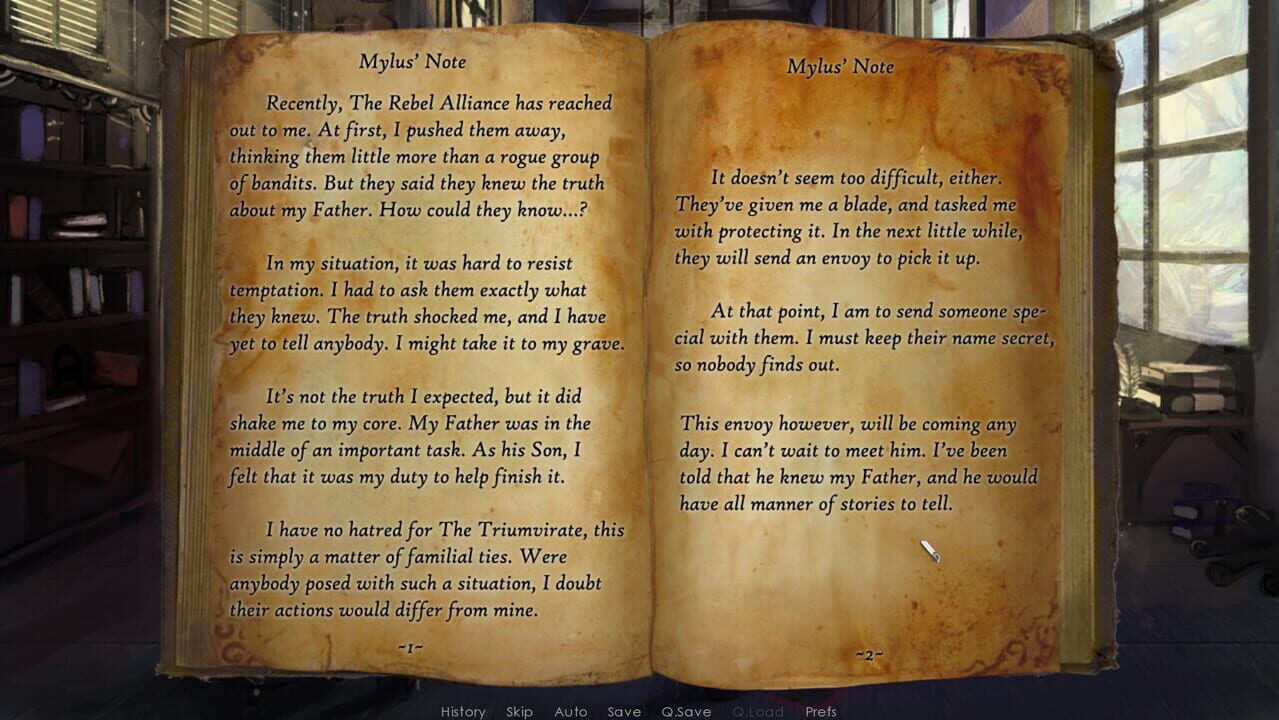 Mylus' Note
Recently, The Rebel Alliance has reached
out to me. At first, I pushed them away,
thinking them little more than a rogue group
of bandits. But they said they knew the truth
about my Father. How could they know...?
In my situation, it was hard to resist
temptation. I had to ask them exactly what
they knew. The truth shocked me, and I have
yet to tell anybody. I might take it to my grave.
It's not the truth I expected, but it did
shake me to my core. My Father was in the
middle of an important task. As his Son, I
felt that it was my duty to help finish it.
I have no hatred for The Triumvirate, this
is simply a matter of familial ties. Were
anybody posed with such a situation, I doubt
their actions would differ from mine.
~1~
Mylus' Note
It doesn't seem too difficult, either.
They've given me a blade, and tasked me
with protecting it. In the next little while,
they will send an envoy to pick it up.
At that point, I am to send someone spe-
cial with them. I must keep their name secret,
so nobody finds out.
This envoy however, will be coming any
day. I can't wait to meet him. I've been
told that he knew my Father, and he would
have all manner of stories to tell.
~2~
History Skip Auto Save Q.Save Q.Load Prefs